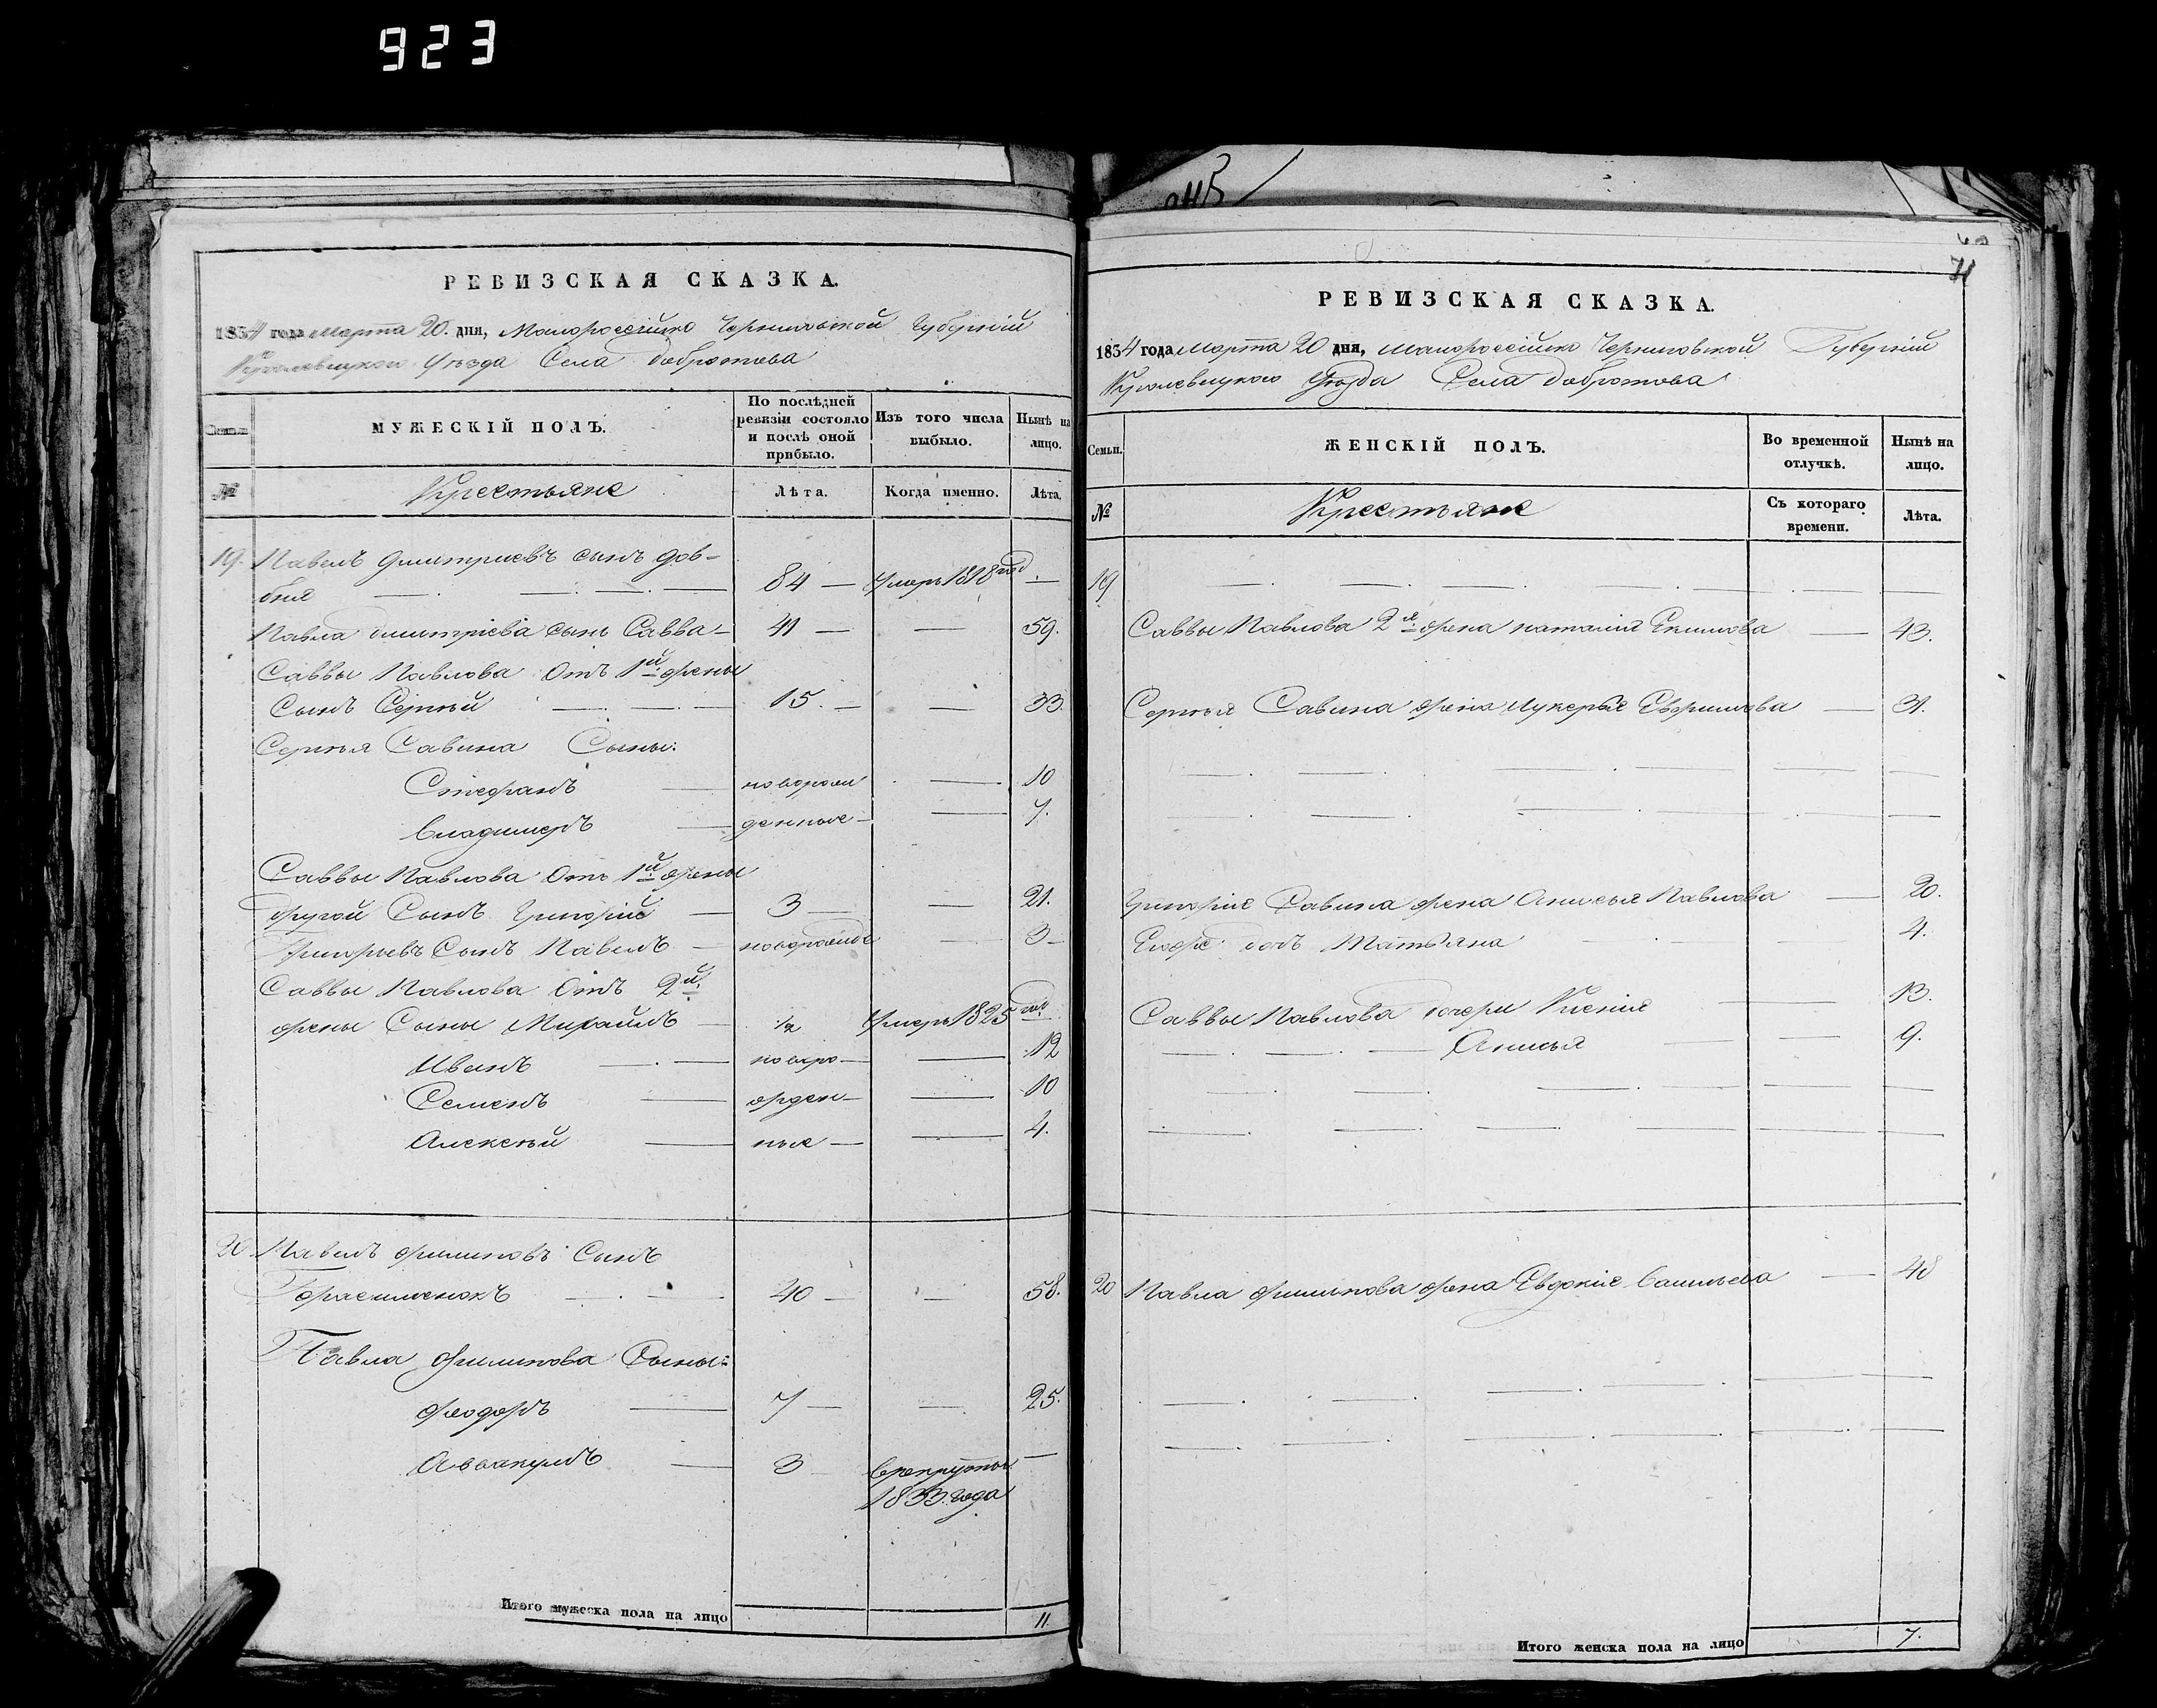 923
РЕВИЗСКАЯ СКАЗКА.
1834 года Марта 20. дня, Малороссійско Черниговской Губерніи
Кролевецкого Уѣзда Села Добротова
Семьи.
МУЖЕСКІЙ ПОЛЪ.
По послѣдней ревизіи состояло и послѣ оной прибыло.
Изъ того числа выбыло.
Нынѣ на лицо.
№
Крестьяне
Лѣта.
Когда именно.
Лѣта.
19. Павелъ Дмитріевъ сынъ Дов-
бня 84 — Умеръ 1818 год. —
Павла Дмитріева сынъ Савва — 41 — — 59.
Саввы Павлова Отъ 1й жены
Сынъ Сергѣй 15. — — 33.
Сергѣя Савина Сыны:
Стефанъ — новорож — 10
Владимеръ — денные — — 7.
Саввы Павлова Отъ 1й жены
другой Сынъ Григорій — 3 — — 21.
Григорьевъ Сынъ Павелъ — новорожде — 3 —
Саввы Павлова Отъ 2й
жены Сыны Михайлъ — 1/2 Умеръ 1825
Иванъ — новоро — — 12
Семенъ — жден — — 10
Алексѣй — ные — — 4.
20 Павелъ Филиповъ Сынъ
Герасименокъ 40 — — 58.
Павла Филипова Сыны:
Феодоръ — 7 — — 25.
Аввакумъ — 3 Врекруты —
1833. года
Итого мужеска пола на лицо 11.
71
РЕВИЗСКАЯ СКАЗКА.
1834 года Марта 20 дня, Малороссійско Черниговской Губерніи
Кролевецкого Уѣзда Села Добротова
Семьи.
ЖЕНСКІЙ ПОЛЪ.
Во временной отлучкѣ.
Нынѣ на лицо.
№
Крестьяне
Съ котораго времени.
Лѣта.
19
Саввы Павлова 2я жена Наталія Екимова — 43.
Сергѣя Савина жена Лукерья Ефримова — 31.
Григорія Савина жена Анисья Павлова — 20.
Егоже дочь Татьяна 4.
Саввы Павлова дочери Ксенія — 13.
Анисья — 9.
20 Павла Филипова жена Евдокія Васильева — 48
Итого женска пола на лицо 7.